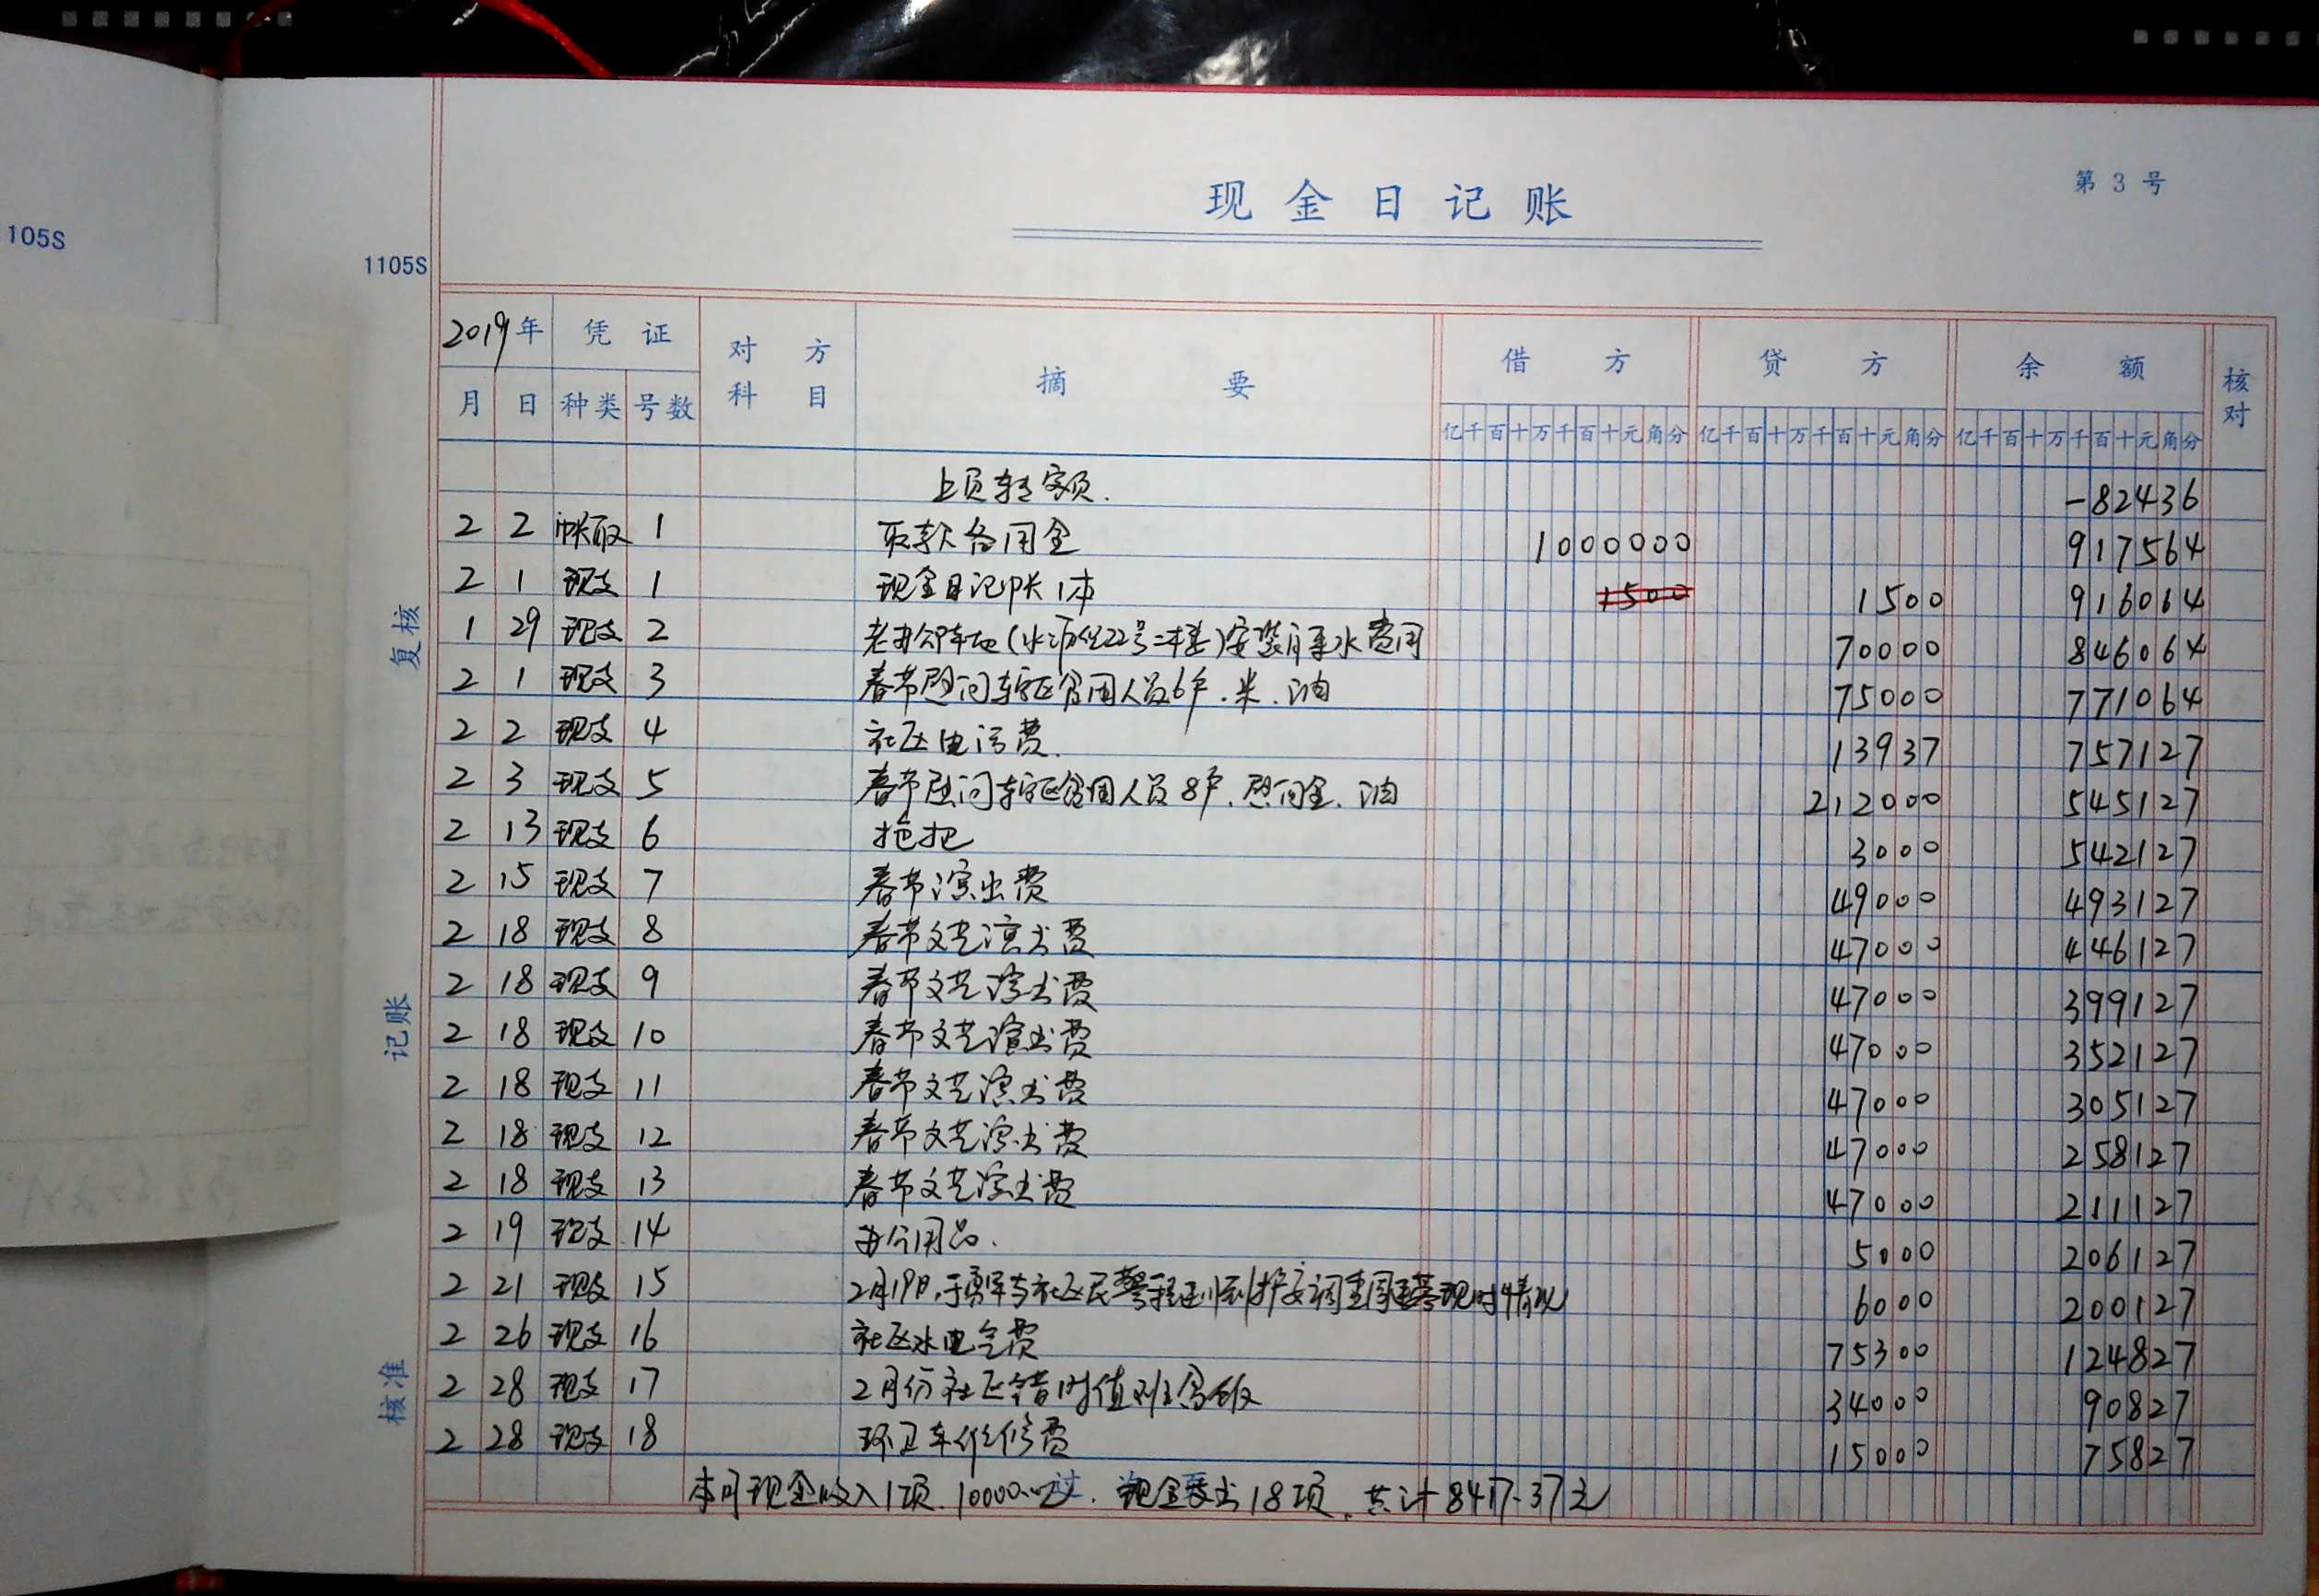 105S
1105S
现金日记账
第 3 号
2019年 凭证 对方科目 摘要 借方 贷方 余额 核对
月 日 种类 号数 亿千百十万千百十元角分 亿千百十万千百十元角分 亿千百十万千百十元角分
上页转余额. -82436
2 2 帐取 1 取款备用金 1000000 917564
2 1 现支 1 现金日记帐1本 1500 1500 916064
1 29 现支 2 老办公车地(水沥化22号二楼)安装自来水费用 70000 846064
2 1 现支 3 春节慰问辖区贫困人员6户.米.油 75000 771064
2 2 现支 4 社区电话费. 13937 757127
2 3 现支 5 春节慰问辖区贫困人员8户.慰问金.油 212000 545127
2 13 现支 6 拖把 3000 542127
2 15 现支 7 春节演出费 49000 493127
2 18 现支 8 春节文艺演出费 47000 446127
2 18 现支 9 春节文艺演出费 47000 399127
2 18 现支 10 春节文艺演出费 47000 352127
2 18 现支 11 春节文艺演出费 47000 305127
2 18 现支 12 春节文艺演出费 47000 258127
2 18 现支 13 春节文艺演出费 47000 211127
2 19 现支 14 办公用品. 5000 206127
2 21 现支 15 2月19日,于勇军与社区民警 现时情况 6000 200127
2 26 现支 16 社区水电气费 75300 124827
2 28 现支 17 2月份社区错时值班盒饭 34000 90827
2 28 现支 18 环卫车维修费 15000 75827
本月现金收入1项.10000.00元.现金支出18项.共计8417.37元
复核
记账
核准